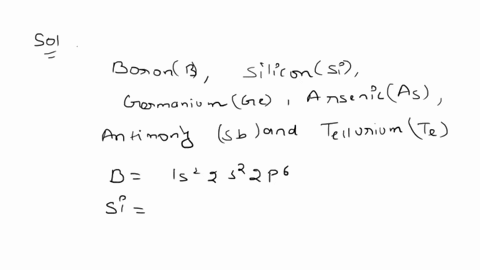 Sol
Boron(B), Silicon(Si),
Germanium(Ge), Arsenic(As),
Antimony (Sb) and Tellurium(Te)
B = 1s² 2s² 2p⁶
Si =